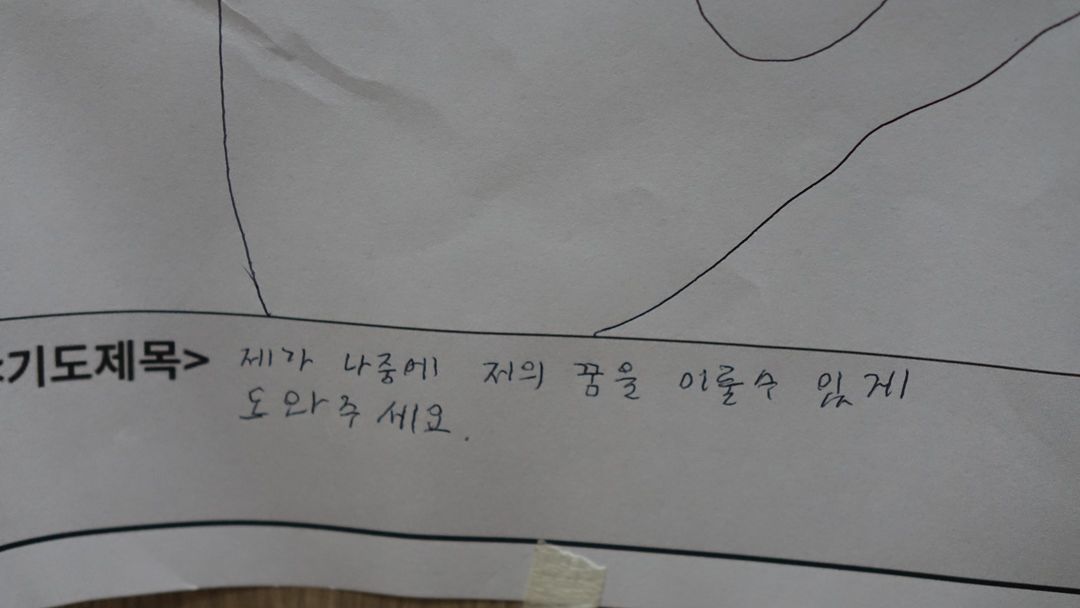 <기도제목> 제가 나중에 저의 꿈을 이룰수 있게
도와주세요.